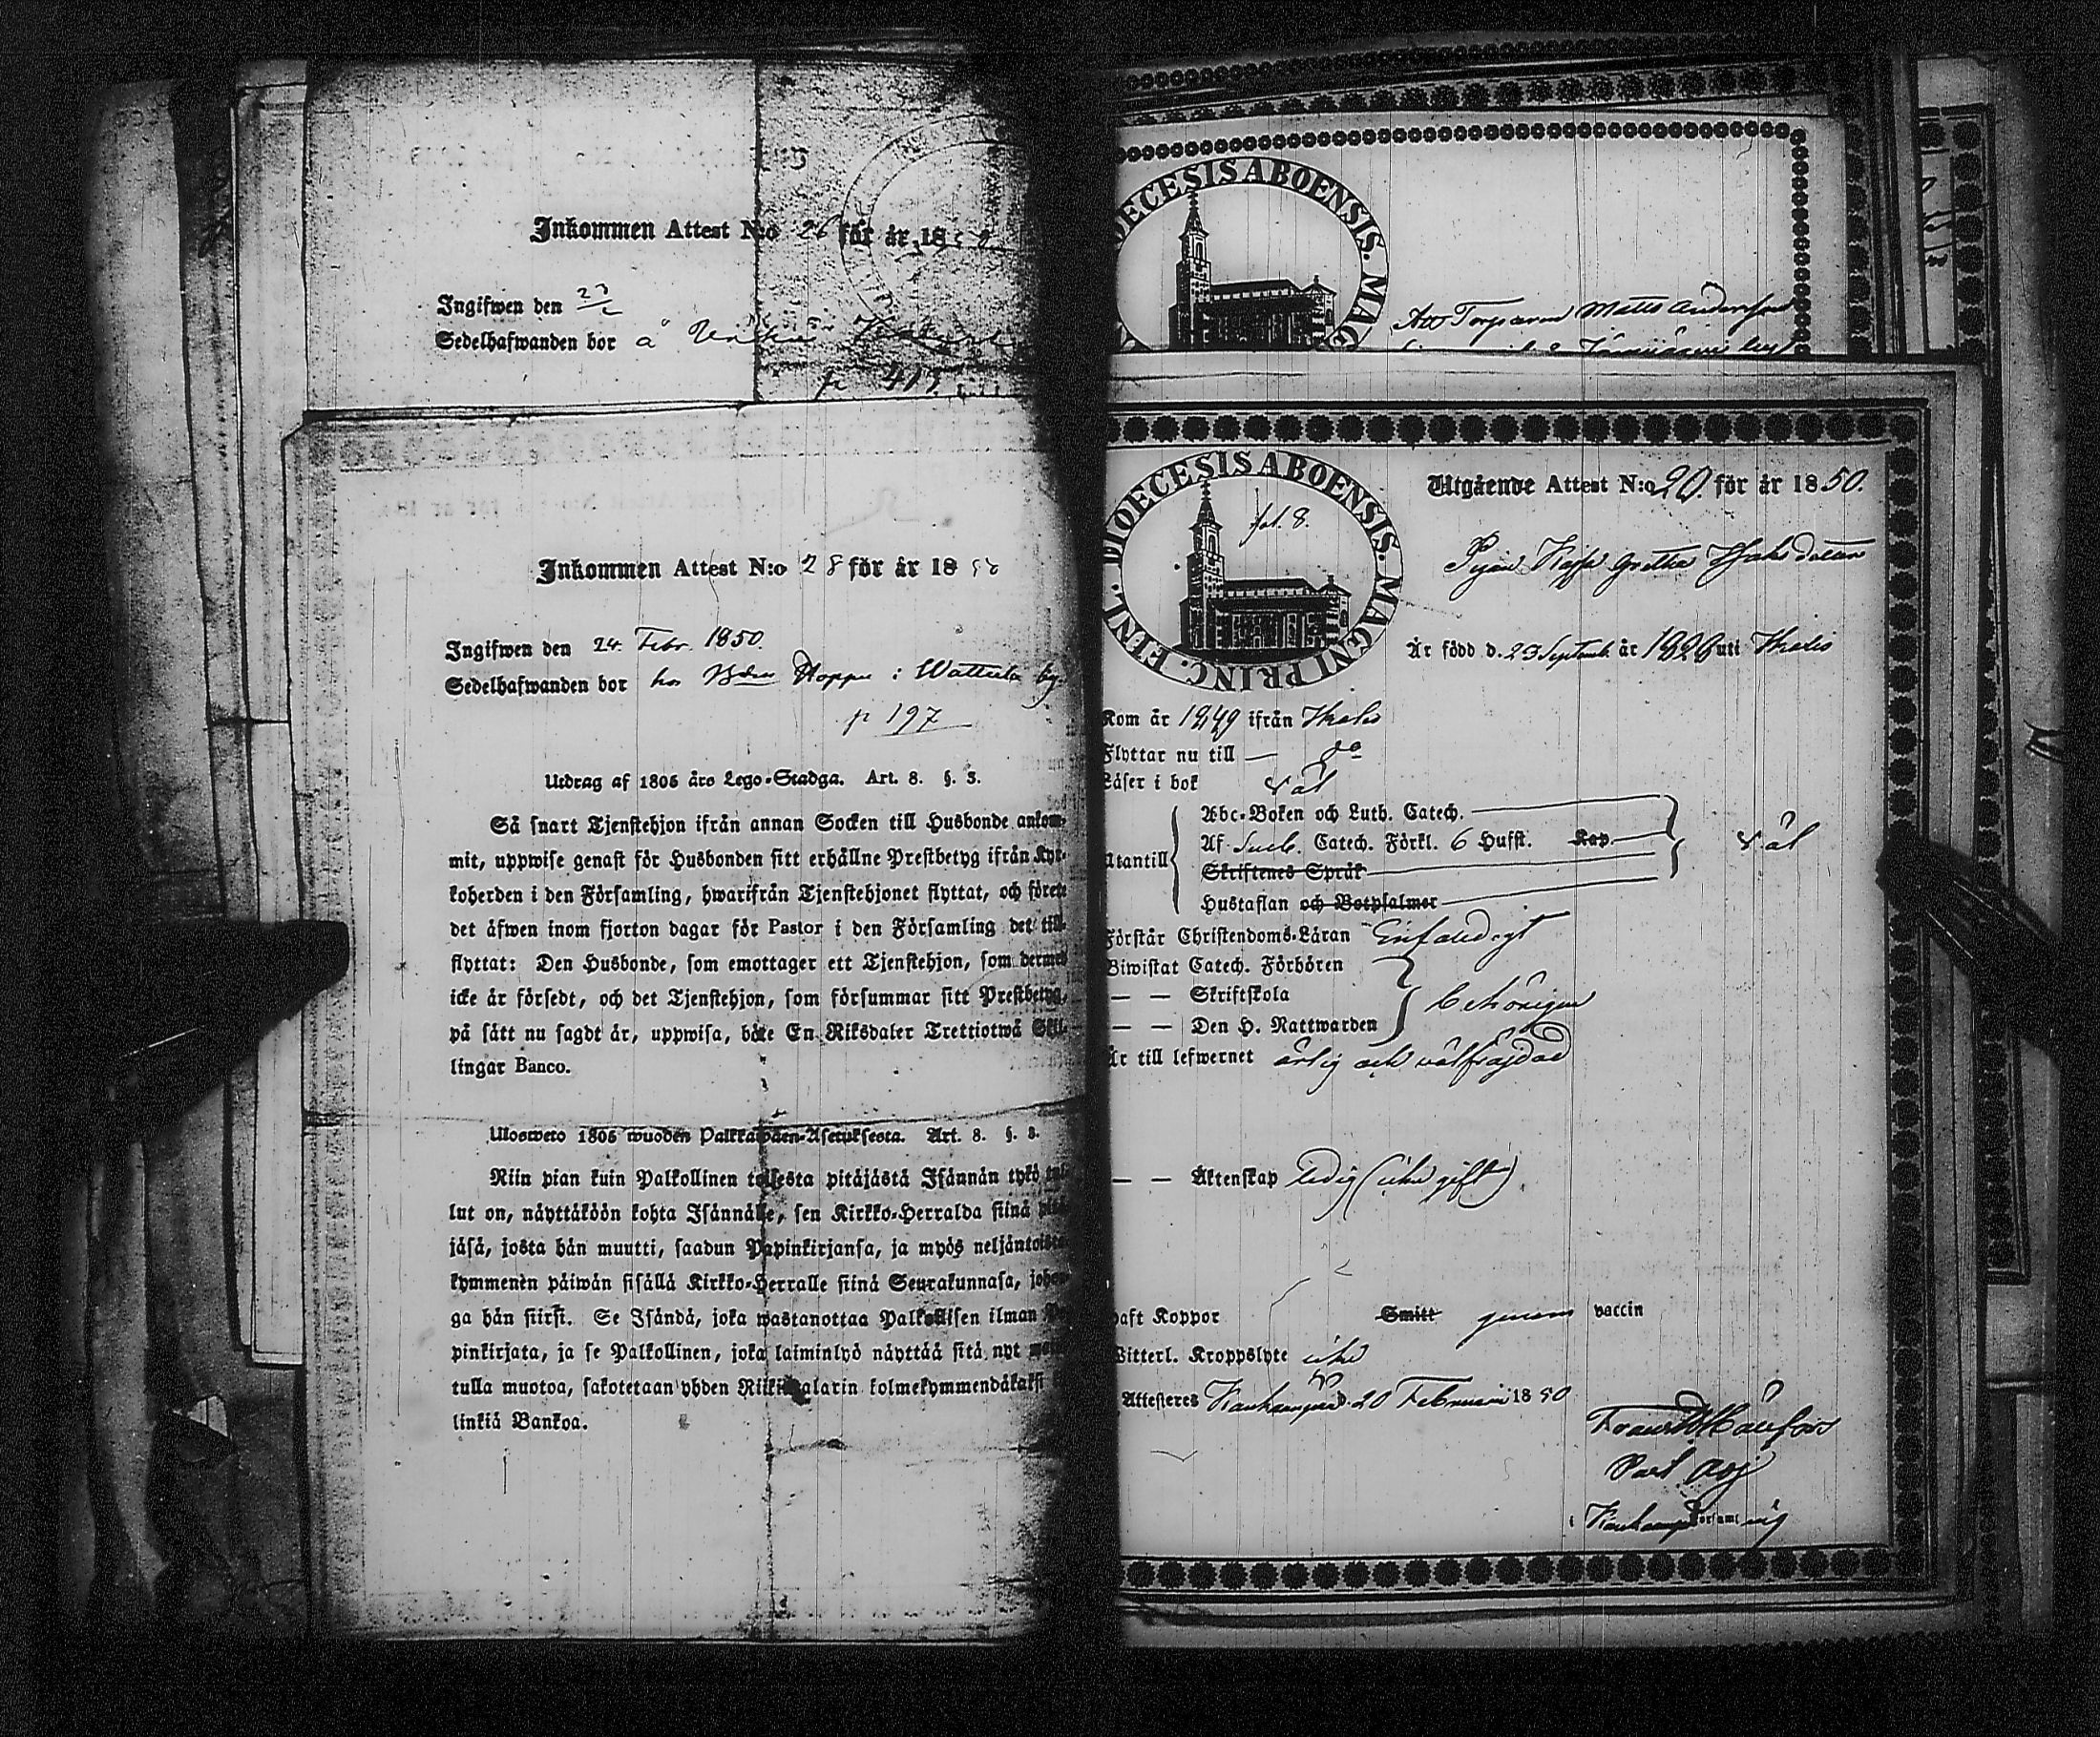 Inkommen Attest N:o 26 för år 18
Ingifwen den 23/2
Sedelhafwanden bor å
p 413.
Inkommen Attest N:o 28 för år 1850
Ingifwen den 24 Febr. 1850.
Sedelhafwanden bor hos Bden Hoppu i Wattula by.
p 197
Utdrag af 1805 års Lego-Stadga. Art. 8. §. 3.
Så snart Tjenstehjon ifrån annan Socken till Husbonde ankom-
mit, uppwise genast för Husbonden sitt erhållne Prestbetyg ifrån Kyr-
koherden i den Församling, hwarifrån Tjenstehjonet flyttat, och förete
det äfwen inom fjorton dagar för Pastor i den Församling det till-
flyttat: Den Husbonde, som emottager ett Tjenstehjon, som dermed
icke är försedt, och det Tjenstehjon, som försummar sitt Prestbetyg,
på sätt nu sagdt är, uppwisa, böte En Riksdaler Trettiotwå Skil-
lingar Banco.
Ulosweto 1805 wuoden Palkkawäen-Asetuksesta. Art. 8. §. 3.
Niin pian kuin Palkollinen toisesta pitäjästä Isännän tykö tul-
lut on, näyttäköön kohta Isännälle, sen Kirkko-Herralda siinä pitä-
jäsä, josta hän muutti, saadun Papinkirjansa, ja myös neljäntoista-
kymmenen päiwän sisällä Kirkko-Herralle siinä Seurakunnasa, johon-
ga hän siirsi. Se Isändä, joka wastanottaa Palkollisen ilman Pa-
pinkirjata, ja se Palkollinen, joka laiminlyö näyttää sitä nyt
tulla muotoa, sakotetaan yhden Riikintalarin kolmekymmendäkaksi
linkiä Bankoa.
DIOECESIS ABOENSIS. MAG
Att Torparen Matts Andersson
FINL. DIOECESIS ABOENSIS. MAGNI PRINC.
fol. 8.
Utgående Attest N:o 20. för år 1850.
Pigan Kajsa Greta Isaksdotter
Är född d. 23 Septemb. år 1826 uti Ikalis
Kom år 1849 ifrån Ikalis
Flyttar nu till — do
Läser i bok väl
Utantill
Abc-Boken och Luth. Catech.
Af Sueb. Catech. Förkl. 6 Hufst. Kap.
Skriftenes Språk
Hustaflan och Botpsalmer
väl
Förstår Christendoms-Läran Enfaldigt
Biwistat Catech. Förhören
— — Skriftskola
— — Den H. Nattwarden
behörigen
Är till lefwernet ärlig och välfräjdad
— — Äktenskap ledig (icke gift)
Haft Koppor Smitt genom vaccin
Witterl. Kroppslyte icke
Attesteres Kankaanpää d. 20 Februarii 1850
i Kankaanpää Församling